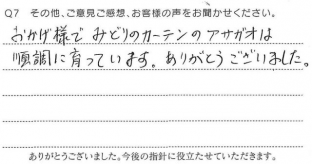 Q7 その他、ご意見ご感想、お客様の声をお聞かせください。
おかげ様で みどりのカーテンのアサガオは
順調に育っています。ありがとうございました。
ありがとうございました。今後の指針に役立たせていただきます。